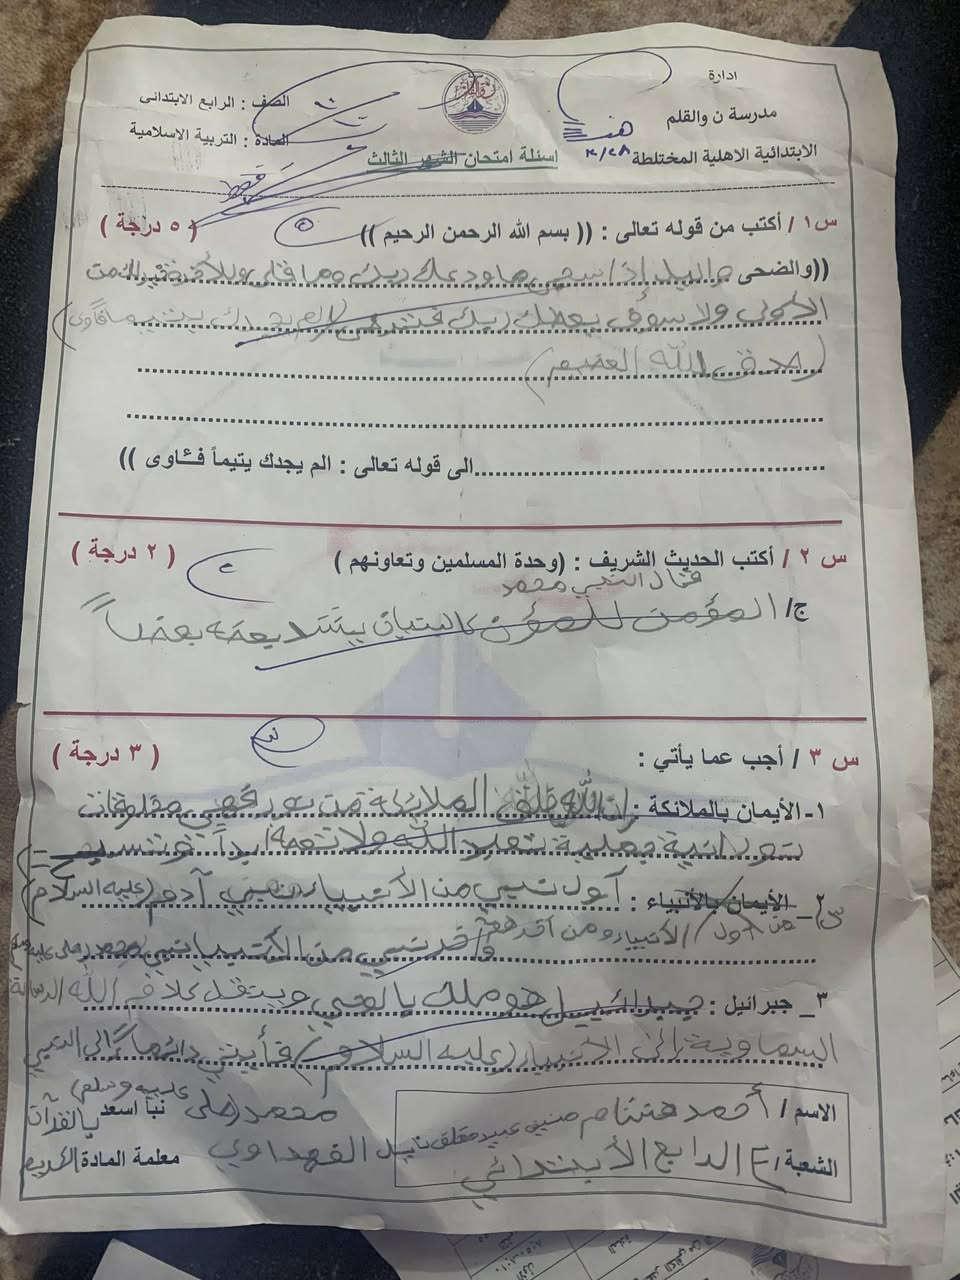 ادارة
مدرسة ن والقلم
الابتدائية الاهلية المختلطة
الصف : الرابع الابتدائي
المادة : التربية الاسلامية
اسئلة امتحان الشهر الثالث
س١ / أكتب من قوله تعالى : (( بسم الله الرحمن الرحيم )) ( ٥ درجة )
((والضحى واليل إذا سجى ما ودعك ربك وما قلى وللأخرة خير لك من
الاولى ولا سوف يعطك ربك فترضى الم يجدك يتيما فأوى)
(صدق الله العضيم)
الى قوله تعالى : الم يجدك يتيماً فئاوى ))
س ٢ / أكتب الحديث الشريف : (وحدة المسلمين وتعاونهم ) ( ٢ درجة )
قال النبي محمد
ج/ المؤمن للمؤمن كالبنيان يشد بعضه بعضاً
س ٣ / أجب عما يأتي : ( ٣ درجة )
١- الأيمان بالملائكة : إن الله خلق الملائكة من نور فهي مخلوقات
نورانية
٢_ الأيمان بالأنبياء : أول نبي من الأنبياء نبي آدم (عليه السلام)
من أول الأنبياء ومن آخرهم
وآخر نبي من الأنبياء نبي محمد
٣_ جبرائيل : جبرائيل هو ملك بالوحي وينقل كلام الله الرسالة
السماوية إلى الأنبياء (عليه السلام) فأيتي دائماً إلى النبي
محمد (صلى عليه وسلم) بالقرآن
الكريم
الاسم / أحمد هشام
الفهداوي
الشعبة / الرابع الأبتدائي
نبأ اسعد
معلمة المادة